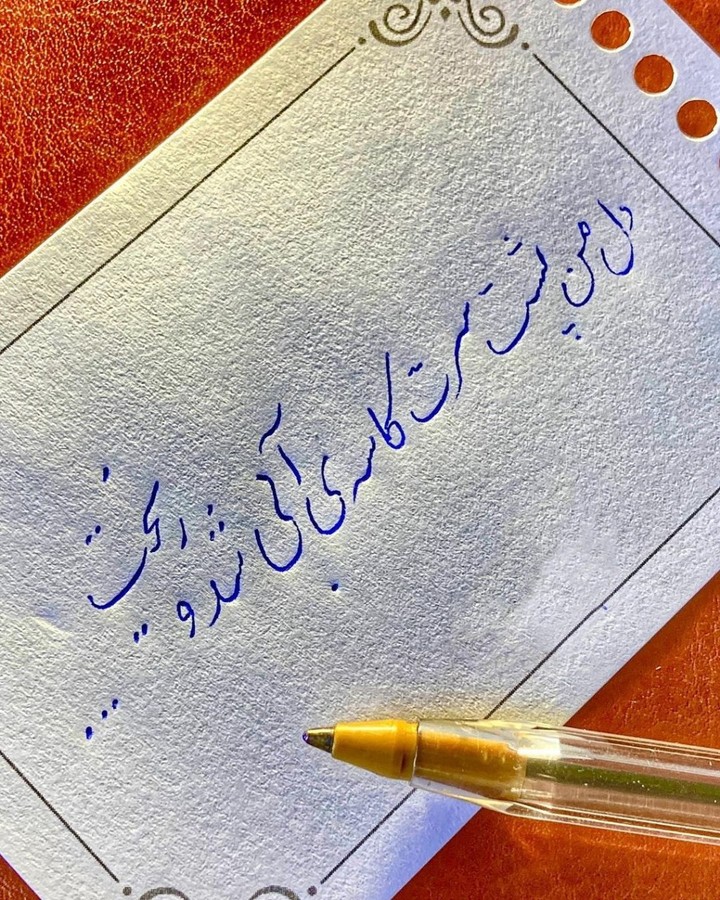 دل من پشت سرت کاسه‌ی آبی شد و ریخت ...